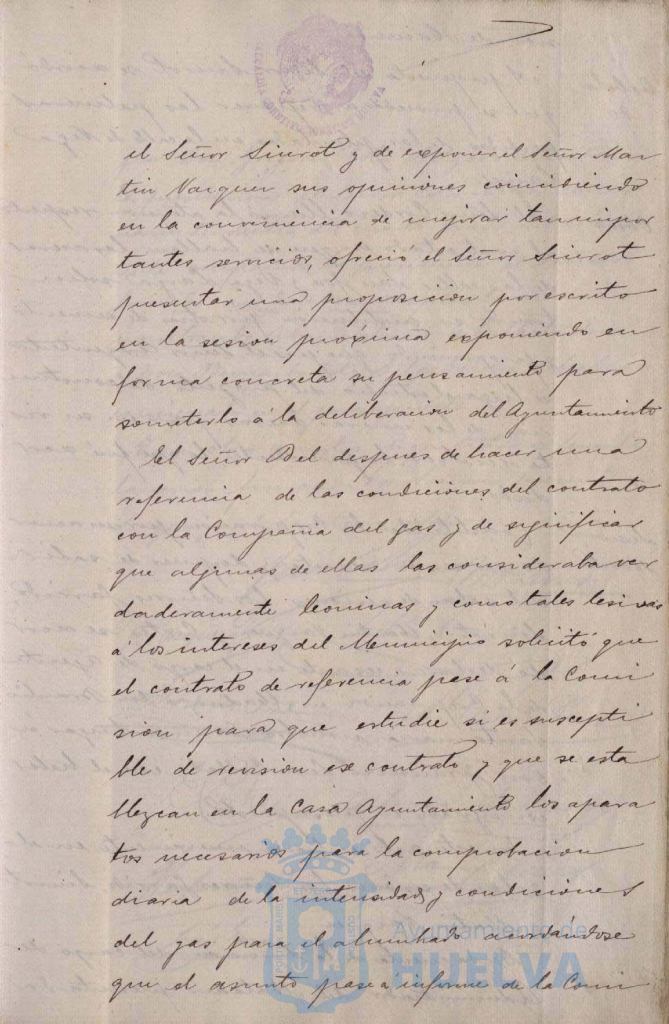 el Señor Siurot y de exponer el Señor Mar
tin Vazquez sus opiniones coincidiendo
en la conveniencia de mejorar tan impor
tantes servicios, ofreció el Señor Siurot
presentar una proposicion por escrito
en la sesion próxima exponiendo en
forma concreta su pensamiento para
someterlo á la deliberacion del Ayuntamiento
El Señor Bel despues de hacer una
referencia de las condiciones del contrato
con la Compañia del gas y de significar
que algunas de ellas las consideraba ver
daderamente leoninas y como tales lesivas
á los intereses del Municipio solicitó que
el contrato de referencia pase á la Comi
sion para que estudie si es suscepti
ble de revision ese contrato y que se esta
blezcan en la Casa Ayuntamiento los apara
tos necesarios para la comprobacion
diaria de la intensidad y condiciones
del gas para el alumbrado acordándose
que el asunto pase á informe de la Comi
Ayuntamiento de
HUELVA